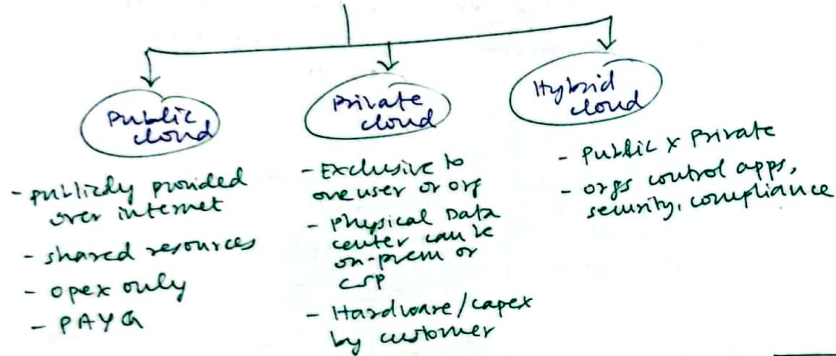 Public
cloud
- publicly provided
over internet
- shared resources
- opex only
- PAYG
Private
cloud
- Exclusive to
one user or org
- Physical Data
center can be
on-prem or
CSP
- Hardware/capex
by customer
Hybrid
cloud
- Public x Private
- orgs control apps,
security, compliance